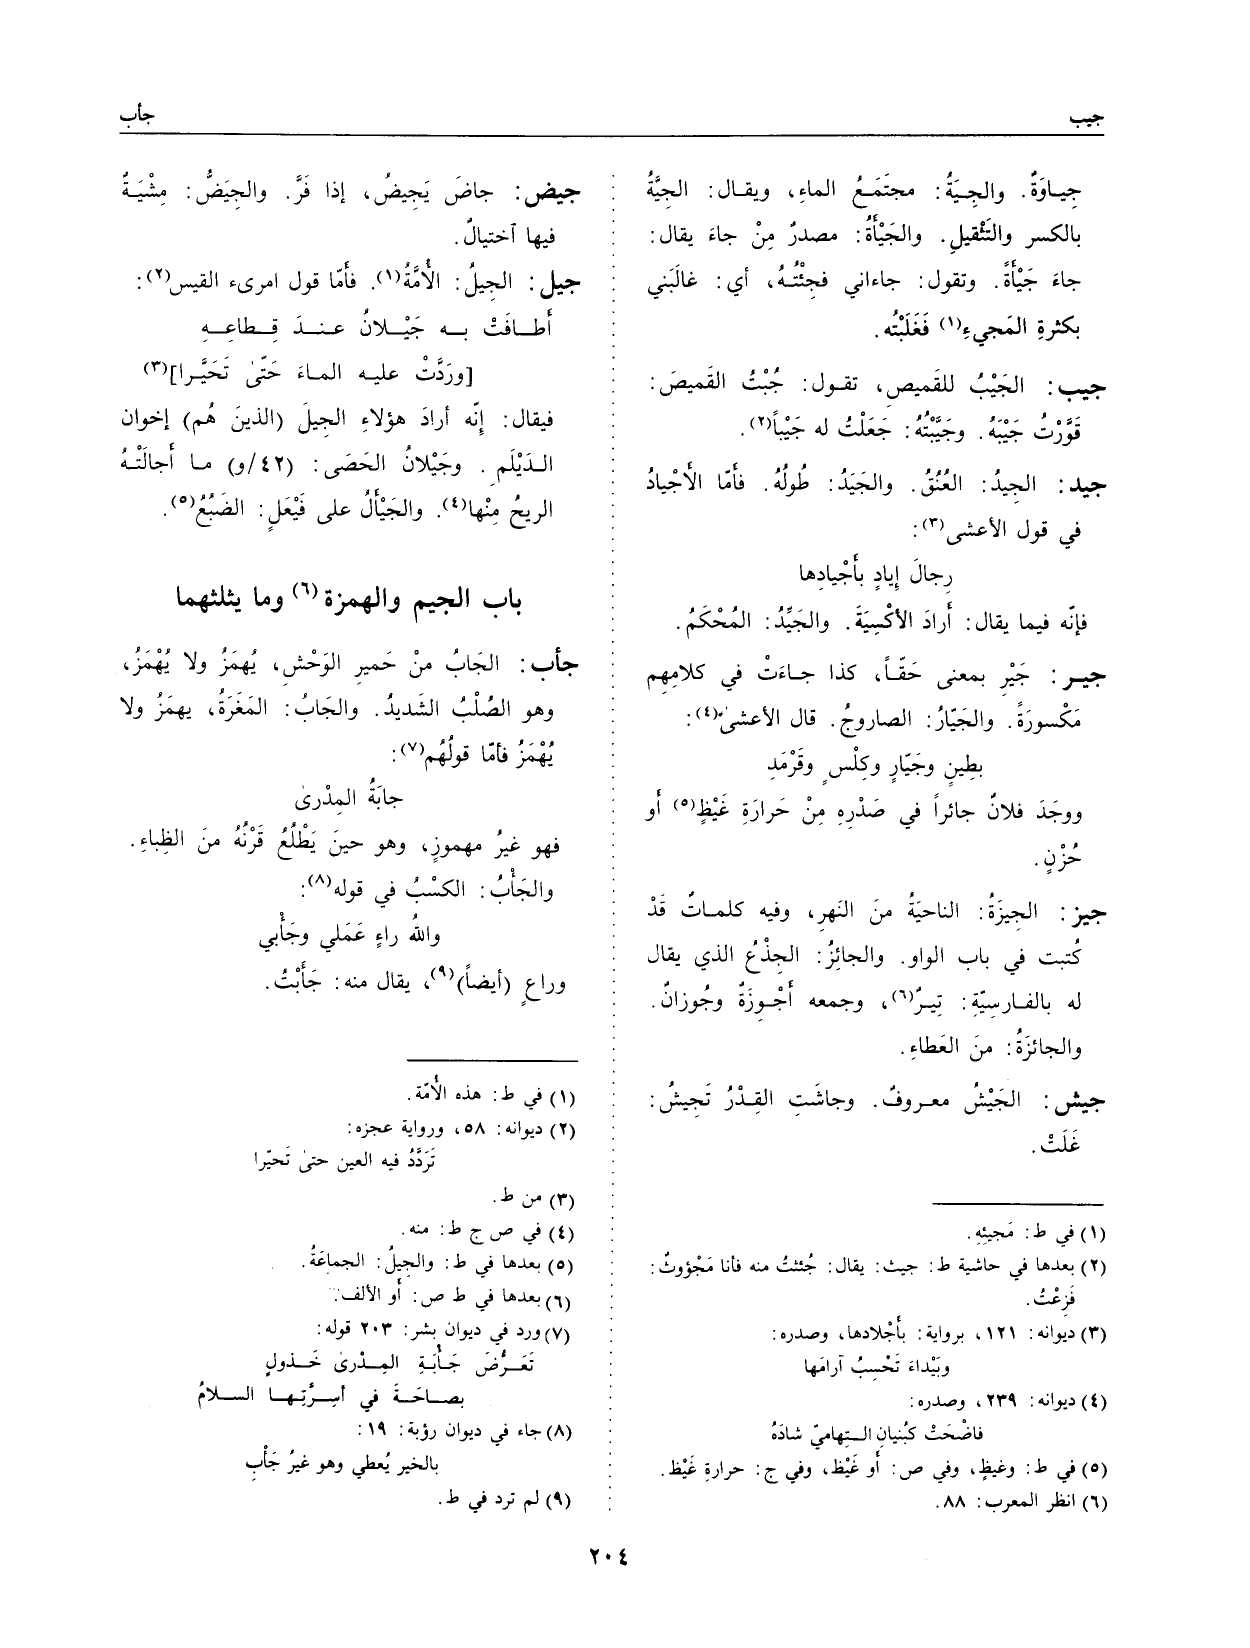 جيب
جأب
جياوَةٌ. والجِيَةُ: مجتَمَعُ الماءِ، ويقال: الجِيَّةُ
بالكسر والتَثْقيلِ. والجَيْأَةُ: مصدرٌ مِنْ جاءَ يقال:
جاءَ جَيْأَةً. وتقول: جاءاني فجِئْتُهُ، أي: غالَبَني
بكثرةِ المَجيءِ(١) فَغَلَبْتُه.
جيب: الجَيْبُ للقَميص، تقول: جُبْتُ القَميصَ:
قَوَّرْتُ جَيْبَهُ. وجَيَّبْتُهُ: جَعَلْتُ له جَيْباً(٢).
جيد: الجِيدُ: العُنُقُ. والجَيَدُ: طُولُهُ. فأمّا الأجْيادُ
في قول الأعشى(٣):
رِجالَ إيادٍ بأجْيادِها
فإنّه فيما يقال: أرادَ الأكْسِيَةَ. والجَيِّدُ: المُحْكَمُ.
جير: جَيْرِ بمعنى حَقّاً، كذا جاءَتْ في كلامِهِم
مَكْسورَةً. والجَيّارُ: الصاروجُ. قال الأعشىٰ(٤):
بطِينٍ وجَيّارٍ وكِلْسٍ وقَرْمَدِ
ووجَدَ فلانٌ جائراً في صَدْرِهِ مِنْ حَرارَةِ غَيْظٍ(٥) أو
حُزْنٍ.
جيز: الجِيزَةُ: الناحيَةُ منَ النَهرِ، وفيه كلماتٌ قَدْ
كُتبت في باب الواو. والجائِزُ: الجِذْعُ الذي يقال
له بالفارسِيّةِ: تِيرٌ(٦)، وجمعه أجْوِزَةٌ وجُوزانٌ.
والجائزَةُ: منَ العَطاءِ.
جيش: الجَيْشُ معروفٌ. وجاشَتِ القِدْرُ تَجيشُ:
غَلَتْ.
(١) في ط: مَجيئِهِ.
(٢) بعدها في حاشية ط: جيث: يقال: جُئثتُ منه فأنا مَجْؤوثٌ:
فَزِعْتُ.
(٣) ديوانه: ١٢١، برواية: بأجْلادها، وصدره:
وبَيْداءَ تَحْسِبُ آرامَها
(٤) ديوانه: ٢٣٩، وصدره:
فاضْحَتْ كبُنيانِ التِهاميّ شادَهُ
(٥) في ط: وغيظٍ، وفي ص: أو غَيْظ، وفي ج: حرارةِ غَيْظ.
(٦) انظر المعرب: ٨٨.
جيض: جاضَ يَجيضُ، إذا فَرَّ. والجِيَضُّ: مِشْيَةٌ
فيها آختيالٌ.
جيل: الجِيلُ: الأُمَّةُ(١). فأمّا قول امرىء القيس(٢):
أطافَتْ به جَيْلانُ عندَ قِطاعِهِ
[ورَدَّتْ عليه الماءَ حَتّىٰ تَحَيَّرا](٣)
فيقال: إنّه أرادَ هؤلاءِ الجِيلَ (الذينَ هُم) إخوان
الدَيْلَمِ. وجَيْلانُ الحَصَى: (٤٢/و) ما أجالَتْهُ
الريحُ مِنْها(٤). والجَيْأَلُ على فَيْعَلٍ: الضَبُعُ(٥).
باب الجيم والهمزة(٦) وما يثلثهما
جأب: الجَابُ منْ حَميرِ الوَحْشِ، يُهمَزُ ولا يُهْمَزُ،
وهو الصُلْبُ الشَديدُ. والجَابُ: المَغَرَةُ، يهمَزُ ولا
يُهْمَزُ فأمّا قولُهُم(٧):
جابَةُ المِدْرىٰ
فهو غيرُ مهموزٍ، وهو حينَ يَطْلُعُ قَرْنُهُ منَ الظِباءِ.
والجَأْبُ: الكسْبُ في قوله(٨):
واللهُ راءٍ عَمَلي وجَأْبي
وراعٍ (أيضاً)(٩)، يقال منه: جَأَبْتُ.
(١) في ط: هذه الأُمّة.
(٢) ديوانه: ٥٨، ورواية عجزه:
تَرَدَّدُ فيه العين حتىٰ تَحيّرا
(٣) من ط.
(٤) في ص ج ط: منه.
(٥) بعدها في ط: والجِيلُ: الجماعَةُ.
(٦) بعدها في ط ص: أو الألف.
(٧) ورد في ديوان بشر: ٢٠٣ قوله:
تَعَرُّضَ جَأْبَةِ المِدْرىٰ خَذولٍ
بصاحَةَ في أسِرَّتِها السلامُ
(٨) جاء في ديوان رؤبة: ١٩:
بالخير يُعطي وهو غيرُ جَأْبِ
(٩) لم ترد في ط.
٢٠٤